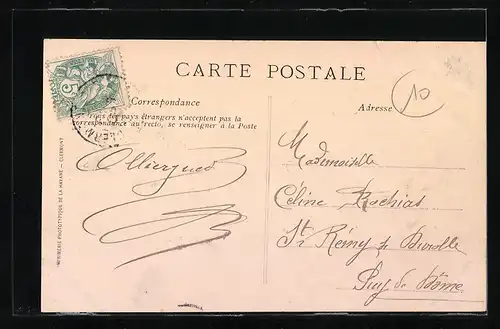 CARTE POSTALE
Correspondance
Tous les pays étrangers n'acceptent pas la
correspondance au recto, se renseigner à la Poste
Adresse
10
5
Mademoiselle
Celine Rachias
St Rémy s Durolle
Puy de Dôme
Olliergues
IMPRIMERIE PHOTOTYPIQUE DE LA MAYARE — CLERMONT